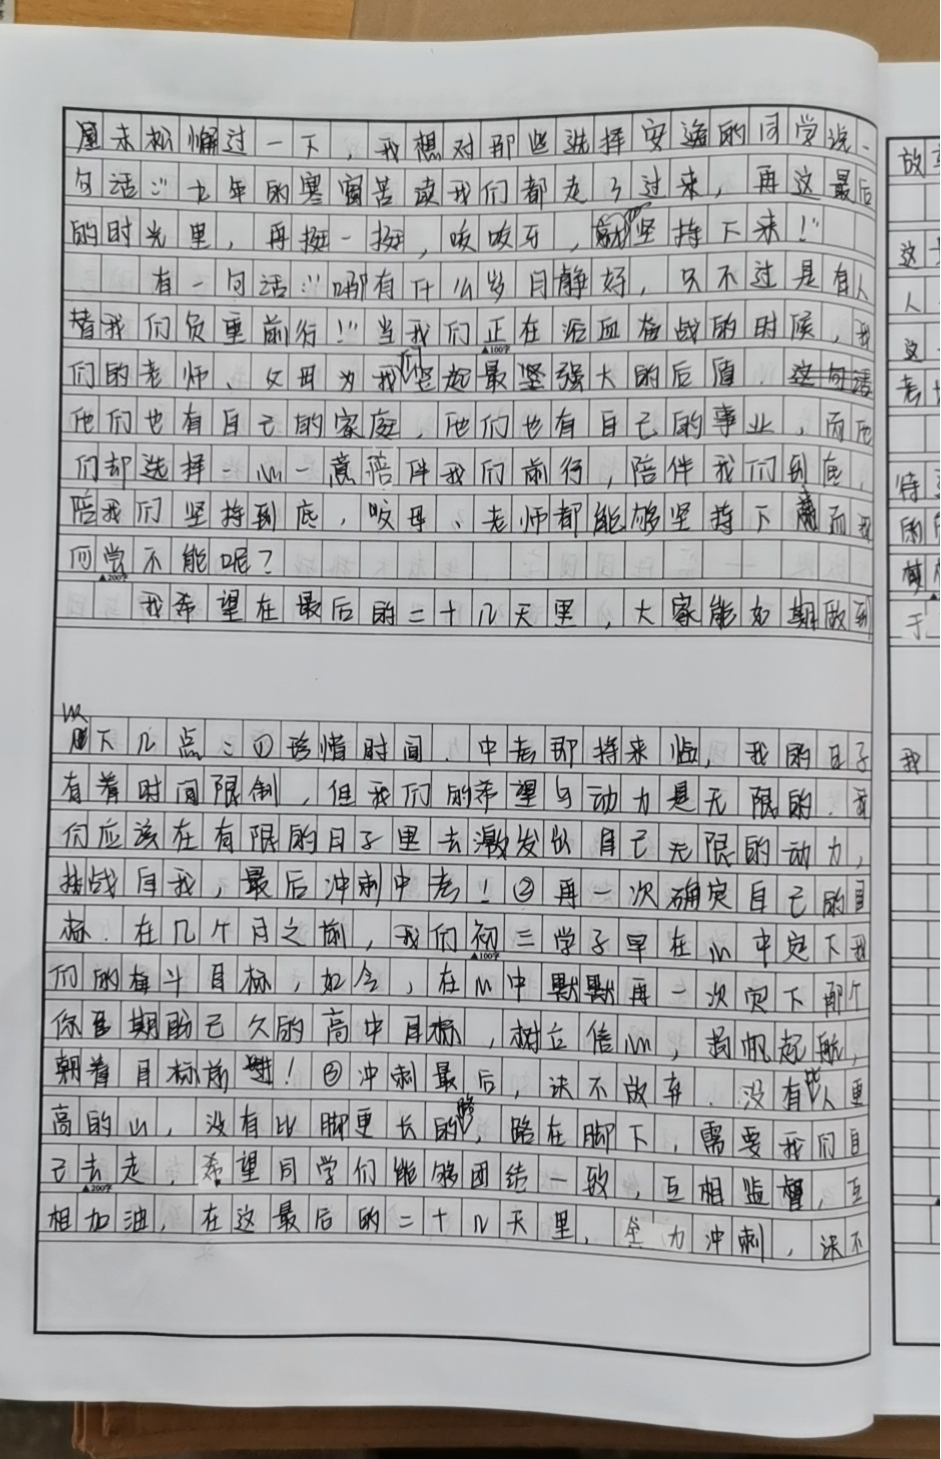 屋未松懈过一下，我想对那些选择安逸的同学说一
句话：“九年的寒窗苦读我们都走了过来，再这最后
的时光里，再挺一挺，咬咬牙，就坚持下来！”
有一句话：“哪有什么岁月静好，只不过是有人
替我们负重前行！”当我们正在浴血奋战的时候，我
▲100字
们的老师、父母为我们竖起最坚强大的后盾．这句话
他们也有自己的家庭，他们也有自己的事业，而他
们却选择一心一意陪伴我们前行，陪伴我们到底，
陪我们坚持到底，父母、老师都能够坚持下而我
何尝不能呢？
▲200字
我希望在最后的二十几天里，大家能如期做到
以下几点：①珍惜时间．中考即将来临，我的日子
有着时间限制，但我们的希望与动力是无限的．我
们应该在有限的日子里去激发出自己无限的动力，
挑战自我，最后冲刺中考！②再一次确定自己的目
标．在几个月之前，我们初三学子早在心中定下我
▲100字
们的奋斗目标，如今，在心中默默再一次定下那个
你已期盼已久的高中目标，树立信心，扬帆起航，
朝着目标前进！③冲刺最后，决不放弃．没有比人更
高的山，没有比脚更长的路，路在脚下，需要我们自
己去走．希望同学们能够团结一致，互相监督，互
▲200字
相加油，在这最后的二十几天里，全力冲刺，决不
故
这
人
这
考
待
的
于
我